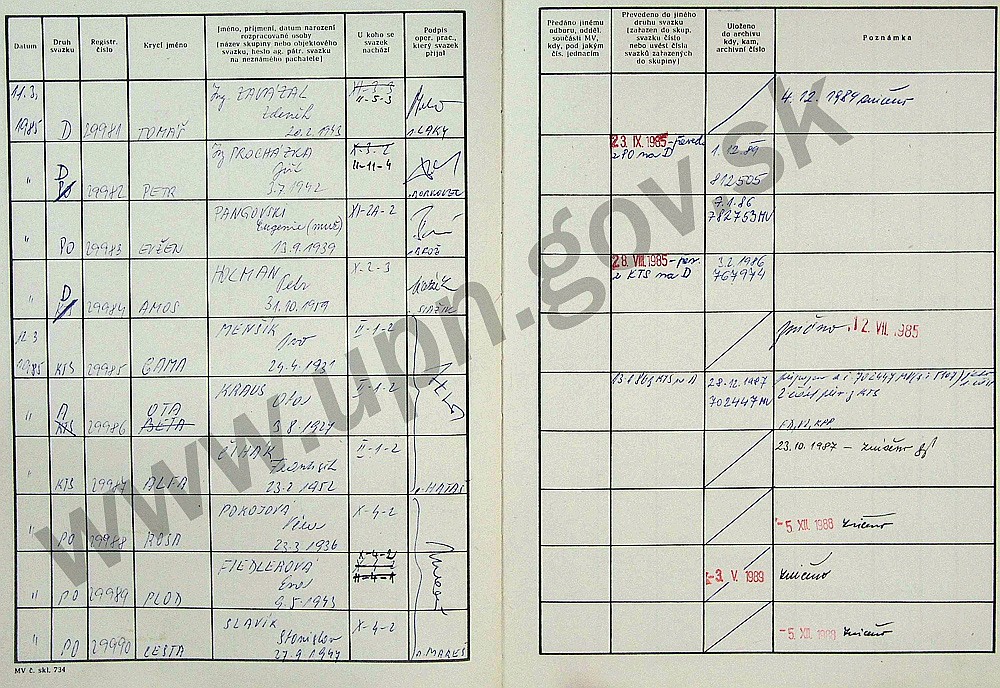 Datum
Druh svazku
Registr. číslo
Krycí jméno
Jméno, příjmení, datum narození
rozpracované osoby
(název skupiny nebo objektového
svazku, heslo ag. pátr. svazku
na neznámého pachatele)
U koho se
svazek
nachází
Podpis
oper. prac.,
který svazek
přijal
Předáno jinému
odboru, odděl.
součásti MV,
kdy, pod jakým
čís. jednacím
Převedeno do jiného
druhu svazku
(zařazen do skup.
svazku číslo
nebo uvést čísla
svazků zařazených
do skupiny)
Uloženo
do archivu
kdy, kam,
archivní číslo
Poznámka
11.3. Ing. ZAVÁZAL XI-3-3
Zdeněk II-5-3
1985 D 29981 TOMÁŠ 20.2.1943
4.12.1989 zničeno
Ing PROCHÁZKA X-3-2
D Jiří II-11-4
" PO 29982 PETR 3.7.1942
23. IX. 1985 - převed.
z PO na D
1.12.89
812505
PANGOVSKI XI-2A-2
Eugenie (muž)
" PO 29983 EVŽEN 13.9.1939 BROŽ
9.1.86
782753 MV
HOLMAN X-2-3
D Petr
" KTS 29984 AMOS 31.10.1959
28. VIII. 1985 - per.
z KTS na D
3.2.1986
767974
12.3 MENŠÍK II-1-2
Ivo
1985 KTS 29985 GAMA 24.4.1931
zničeno 12. VII. 1985
KRAUS II-1-2
A OTA Ota
" KTS 29986 BETA 3.8.1927
KTS n A
28.12.1987
702447 MV
KTS
ČIHÁK II-1-2
František
" KTS 29987 ALFA 23.2.1952 MATAŠ
23.10.1987 - zničeno
POKOJOVÁ X-4-2
Věra
" PO 29988 ROSA 23.3.1936
-5. XII. 1988 zničeno
FIEDLEROVÁ X-4-2
" PO 29989 PLOD 9.5.1943 II-4-1
-3. V. 1989 zničeno
SLAVÍK X-4-2
Stanislav
" PO 29990 CESTA 27.9.1947 MAREŠ
-5. XII. 1988 zničeno
MV č. skl. 734
www.upn.gov.sk